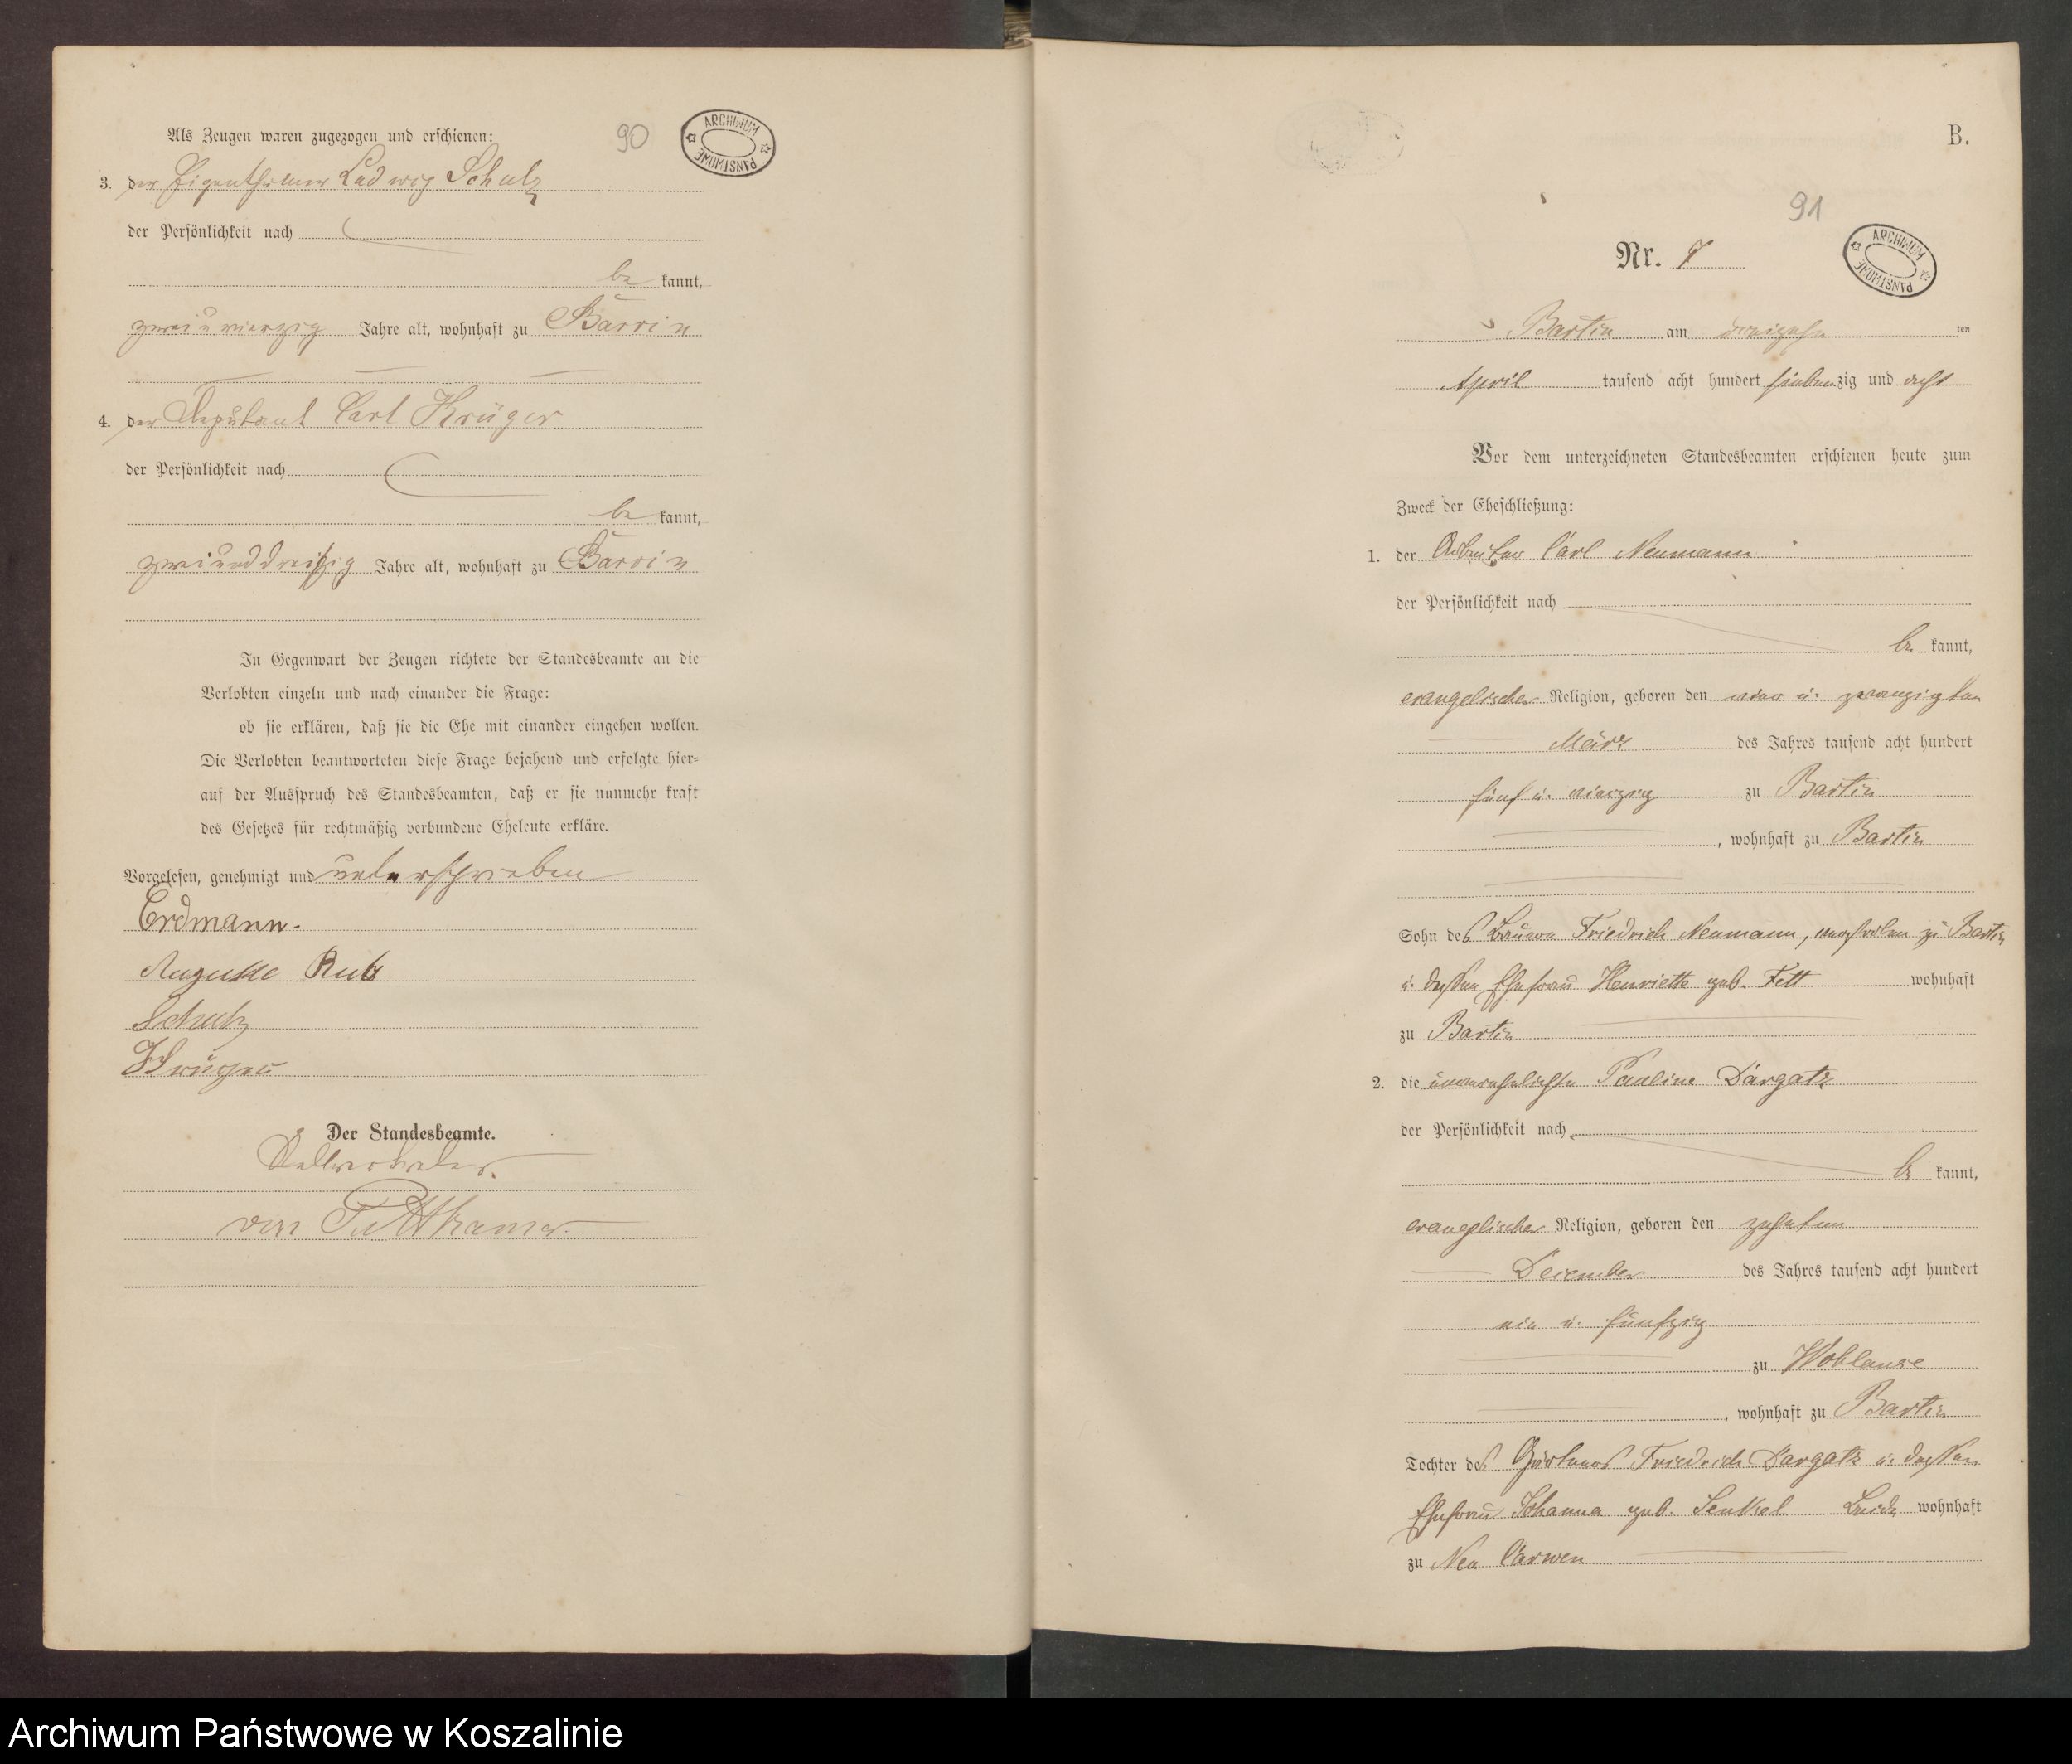 90
ARCHIWUM PAŃSTWOWE
Als Zeugen waren zugezogen und erschienen:
3. der Eigenthümer Ludwig Schulz
der Persönlichkeit nach
be kannt,
zwei u vierzig Jahre alt, wohnhaft zu Barvin
4. der Deputant Carl Krüger
der Persönlichkeit nach
be kannt,
zweiunddreißig Jahre alt, wohnhaft zu Barvin
In Gegenwart der Zeugen richtete der Standesbeamte an die
Verlobten einzeln und nach einander die Frage:
ob sie erklären, daß sie die Ehe mit einander eingehen wollen.
Die Verlobten beantworteten diese Frage bejahend und erfolgte hier-
auf der Ausspruch des Standesbeamten, daß er sie nunmehr kraft
des Gesetzes für rechtmäßig verbundene Eheleute erkläre.
Vorgelesen, genehmigt und unterschrieben
Erdmann.
Auguste
Schulz
Krüger
Der Standesbeamte.
von Puttkamer.
B.
91
ARCHIWUM PAŃSTWOWE
Nr. 7
Bartin am dreizehn ten
April tausend acht hundert siebenzig und acht
Vor dem unterzeichneten Standesbeamten erschienen heute zum
Zweck der Eheschließung:
1. der Arbeiter Carl Neumann
der Persönlichkeit nach
be kannt,
evangelischer Religion, geboren den vier u. zwanzigsten
März des Jahres tausend acht hundert
fünf u. vierzig zu Bartin
, wohnhaft zu Bartin
Sohn des Bauern Friedrich Neumann, verstorben zu Bartin
u. dessen Ehefrau Henriette geb. Fett wohnhaft
zu Bartin
2. die unverehelichte Pauline Dargatz
der Persönlichkeit nach
be kannt,
evangelischer Religion, geboren den zehnten
December des Jahres tausend acht hundert
ein u. fünfzig
zu Woblanse
, wohnhaft zu Bartin
Tochter des Gärtners Friedrich Dargatz u. dessen
Ehefrau Johanna geb. Senkel beide wohnhaft
zu Neu Carwen
Archiwum Państwowe w Koszalinie